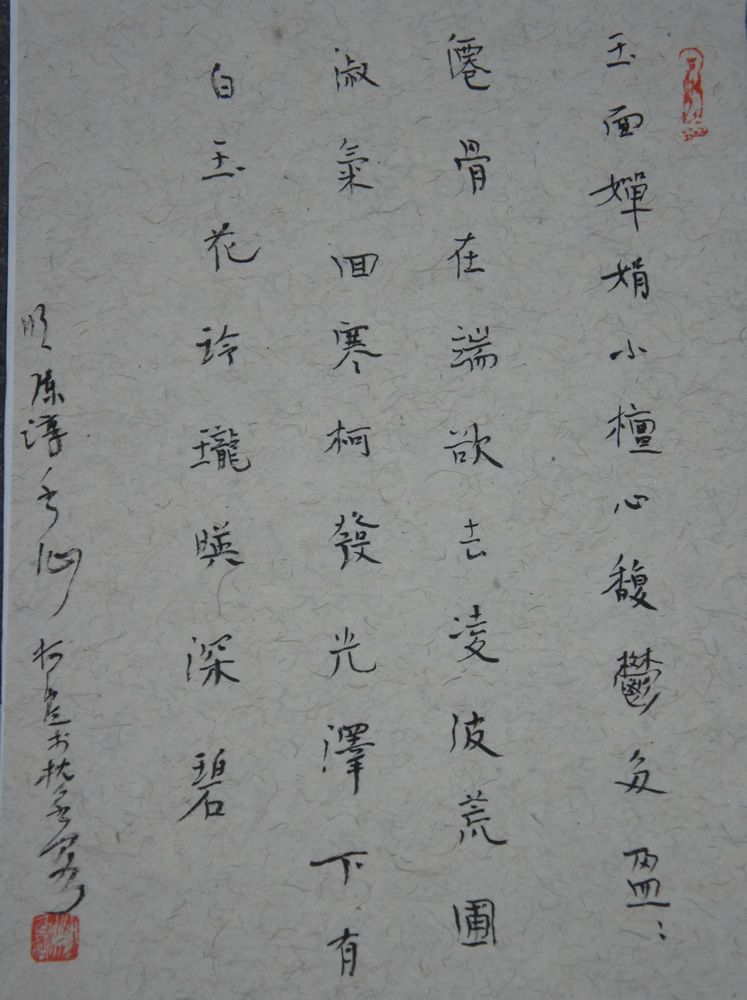 玉面嬋娟小檀心馥鬱多盈：
僊骨在端欲去凌波荒圃
淑氣回寒柯發光澤下有
白玉花玲瓏暎深碧
明陳淳水仙